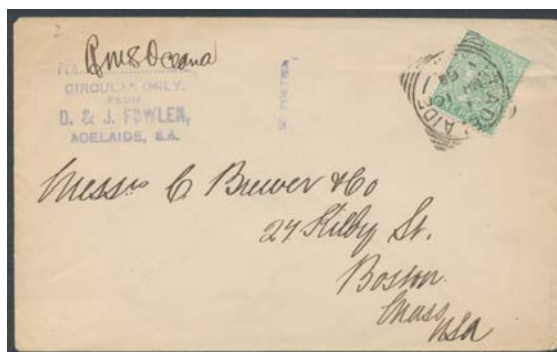 RMS Oceana
CIRCULAR ONLY.
FROM
D. & J. FOWLER,
ADELAIDE, S.A.
ADELAIDE
Messrs C. Brewer & Co
27 Kilby St.
Boston
Mass
USA